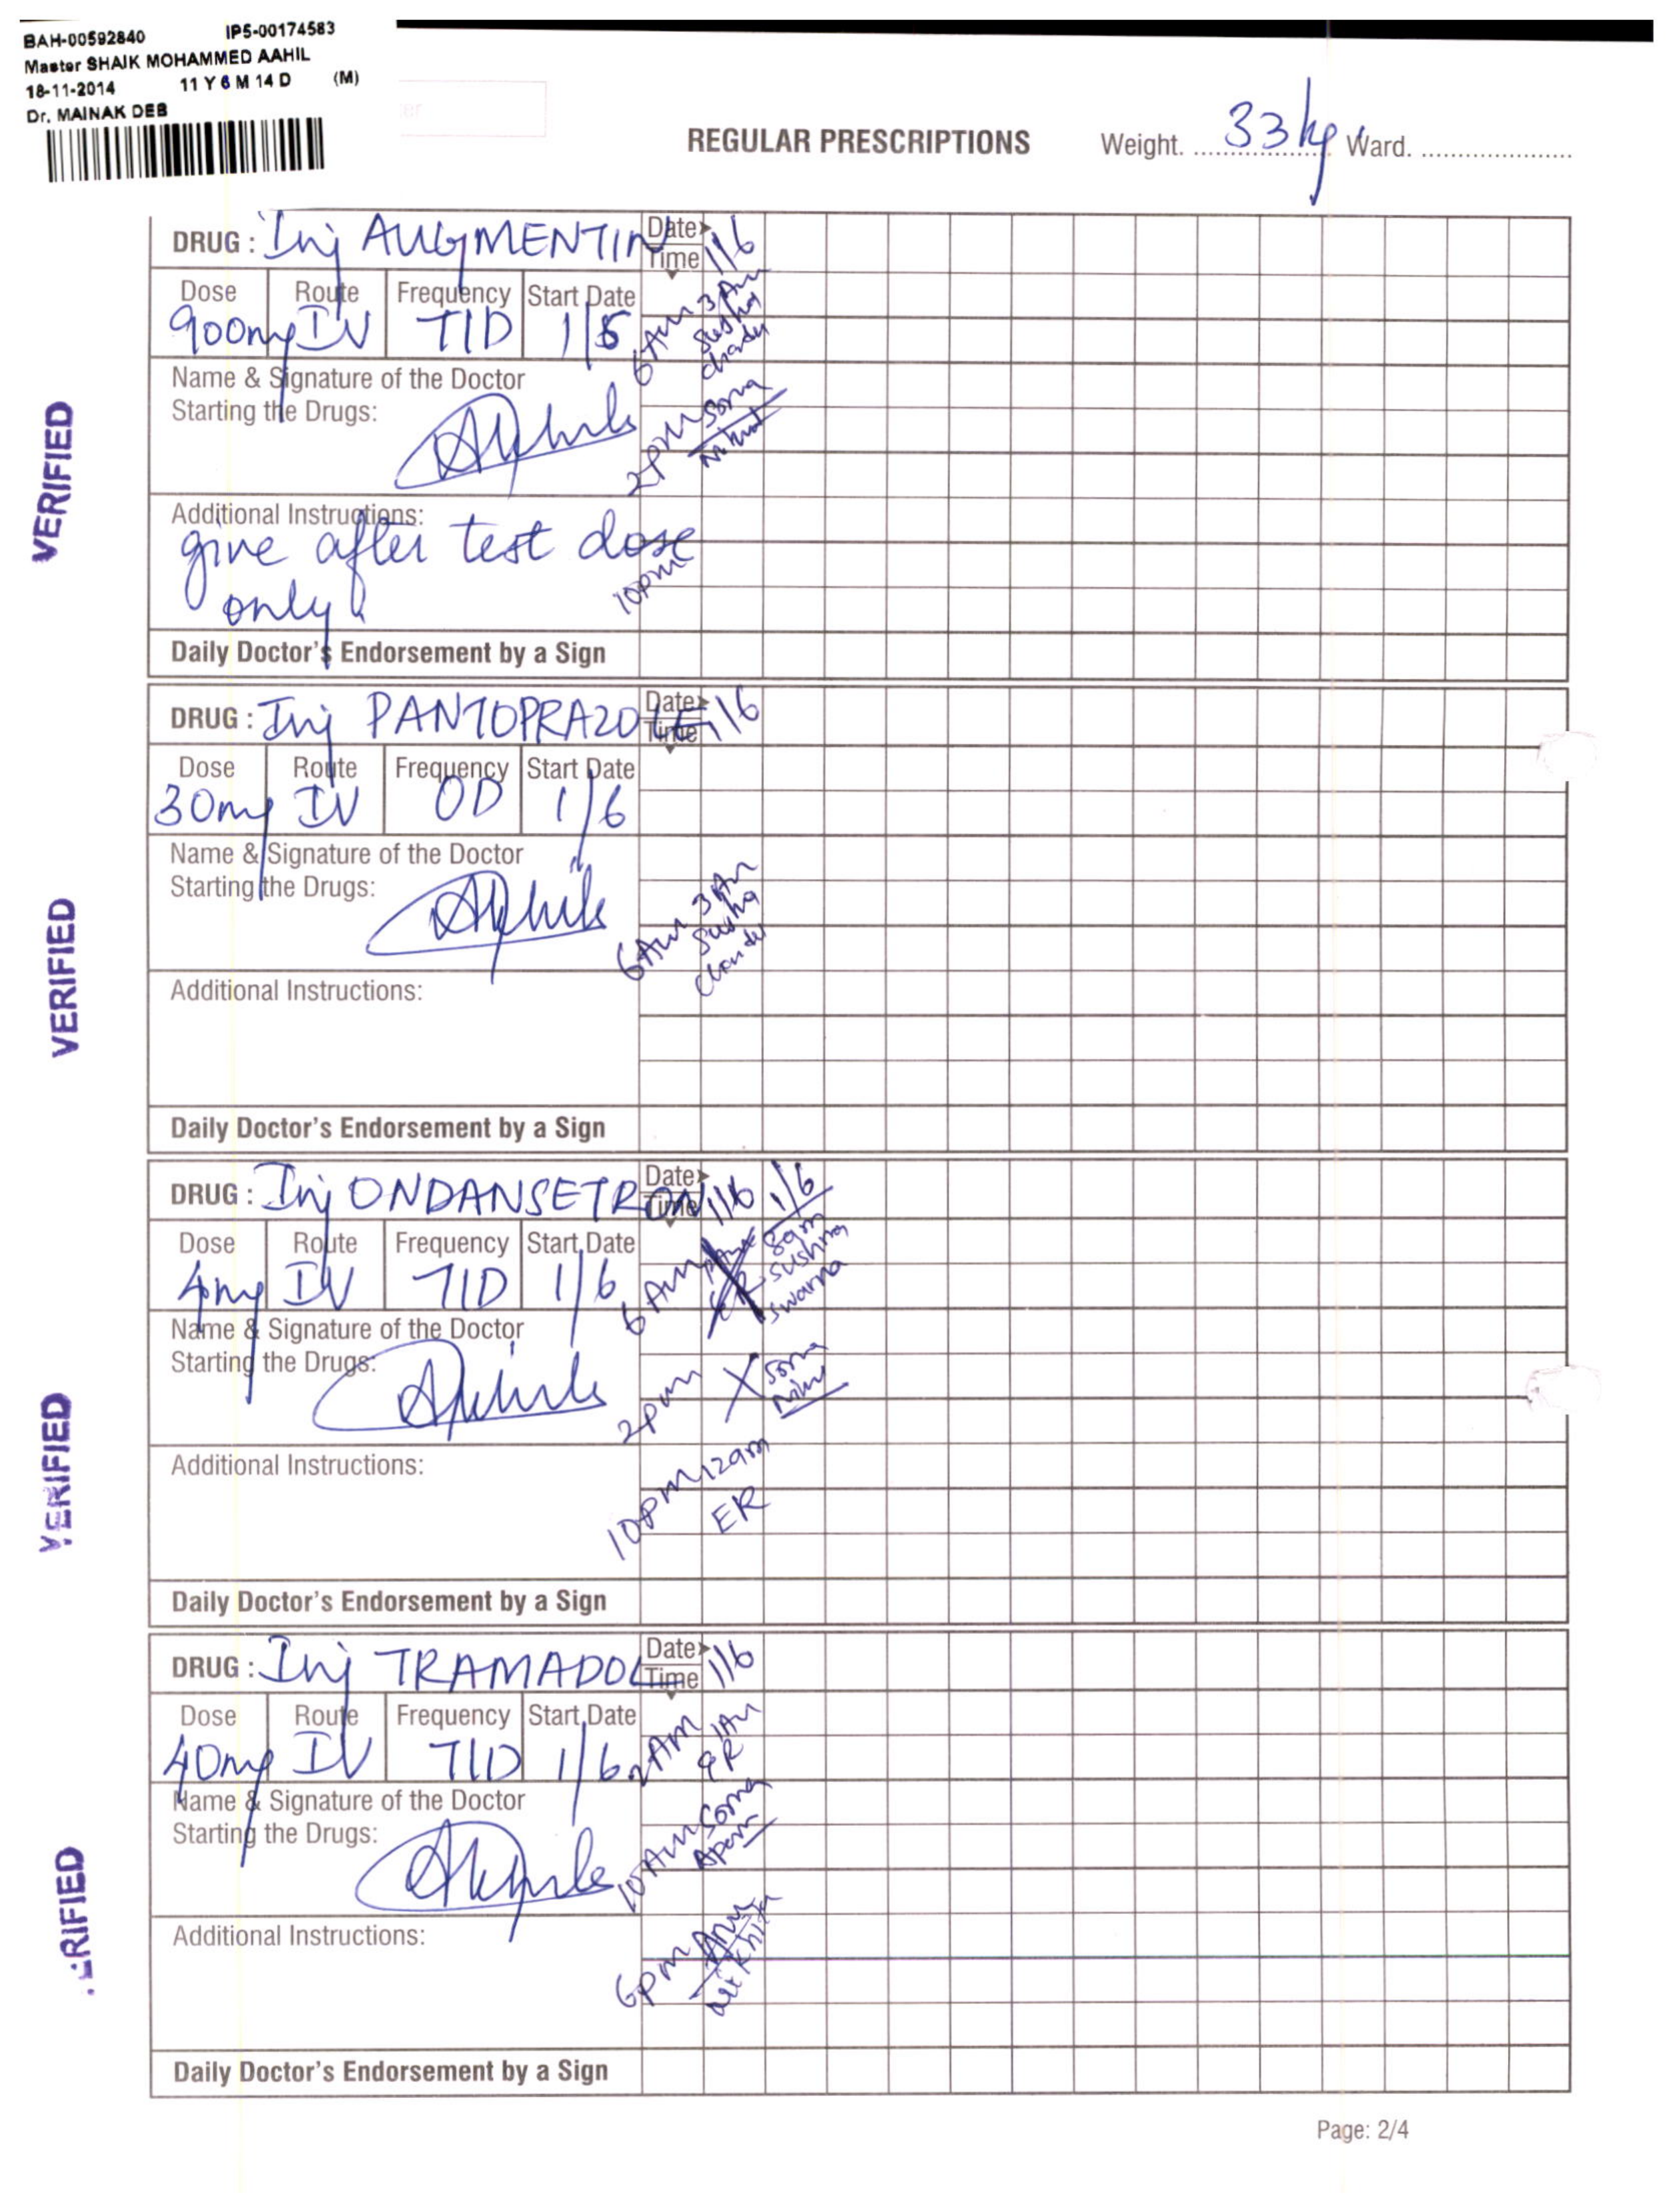 BAH-00592840 IP5-00174583
Master SHAIK MOHAMMED AAHIL
18-11-2014 11 Y 6 M 14 D (M)
Dr. MAINAK DEB
REGULAR PRESCRIPTIONS Weight. 33 kg Ward.
DRUG : Inj AUGMENTIN Date 1/6
Time
Dose Route Frequency Start Date
900mg IV TID 1/6
6 Am 3 Am
Name & Signature of the Doctor
Starting the Drugs:
2pm Soma
Additional Instructions:
give after test dose
only
10pm
Daily Doctor's Endorsement by a Sign
VERIFIED
DRUG : Inj PANTOPRAZOLE Date 1/6
Time
Dose Route Frequency Start Date
30mg IV OD 1/6
Name & Signature of the Doctor
Starting the Drugs:
6Am 3 Am
Additional Instructions:
Daily Doctor's Endorsement by a Sign
VERIFIED
DRUG : Inj ONDANSETRON Date 1/6 1/6
Time
Dose Route Frequency Start Date
4mg IV TID 1/6
6 Am 8am
sushma
swarna
Name & Signature of the Doctor
Starting the Drugs:
2pm X Soma
Additional Instructions:
10pm 12am
ER
Daily Doctor's Endorsement by a Sign
VERIFIED
DRUG : Inj TRAMADOL Date 1/6
Time
Dose Route Frequency Start Date
40mg IV TID 1/6
2Am 1Am
ER
Name & Signature of the Doctor
Starting the Drugs:
10Am Soma
Additional Instructions:
6pm
Daily Doctor's Endorsement by a Sign
ERIFIED
Page: 2/4